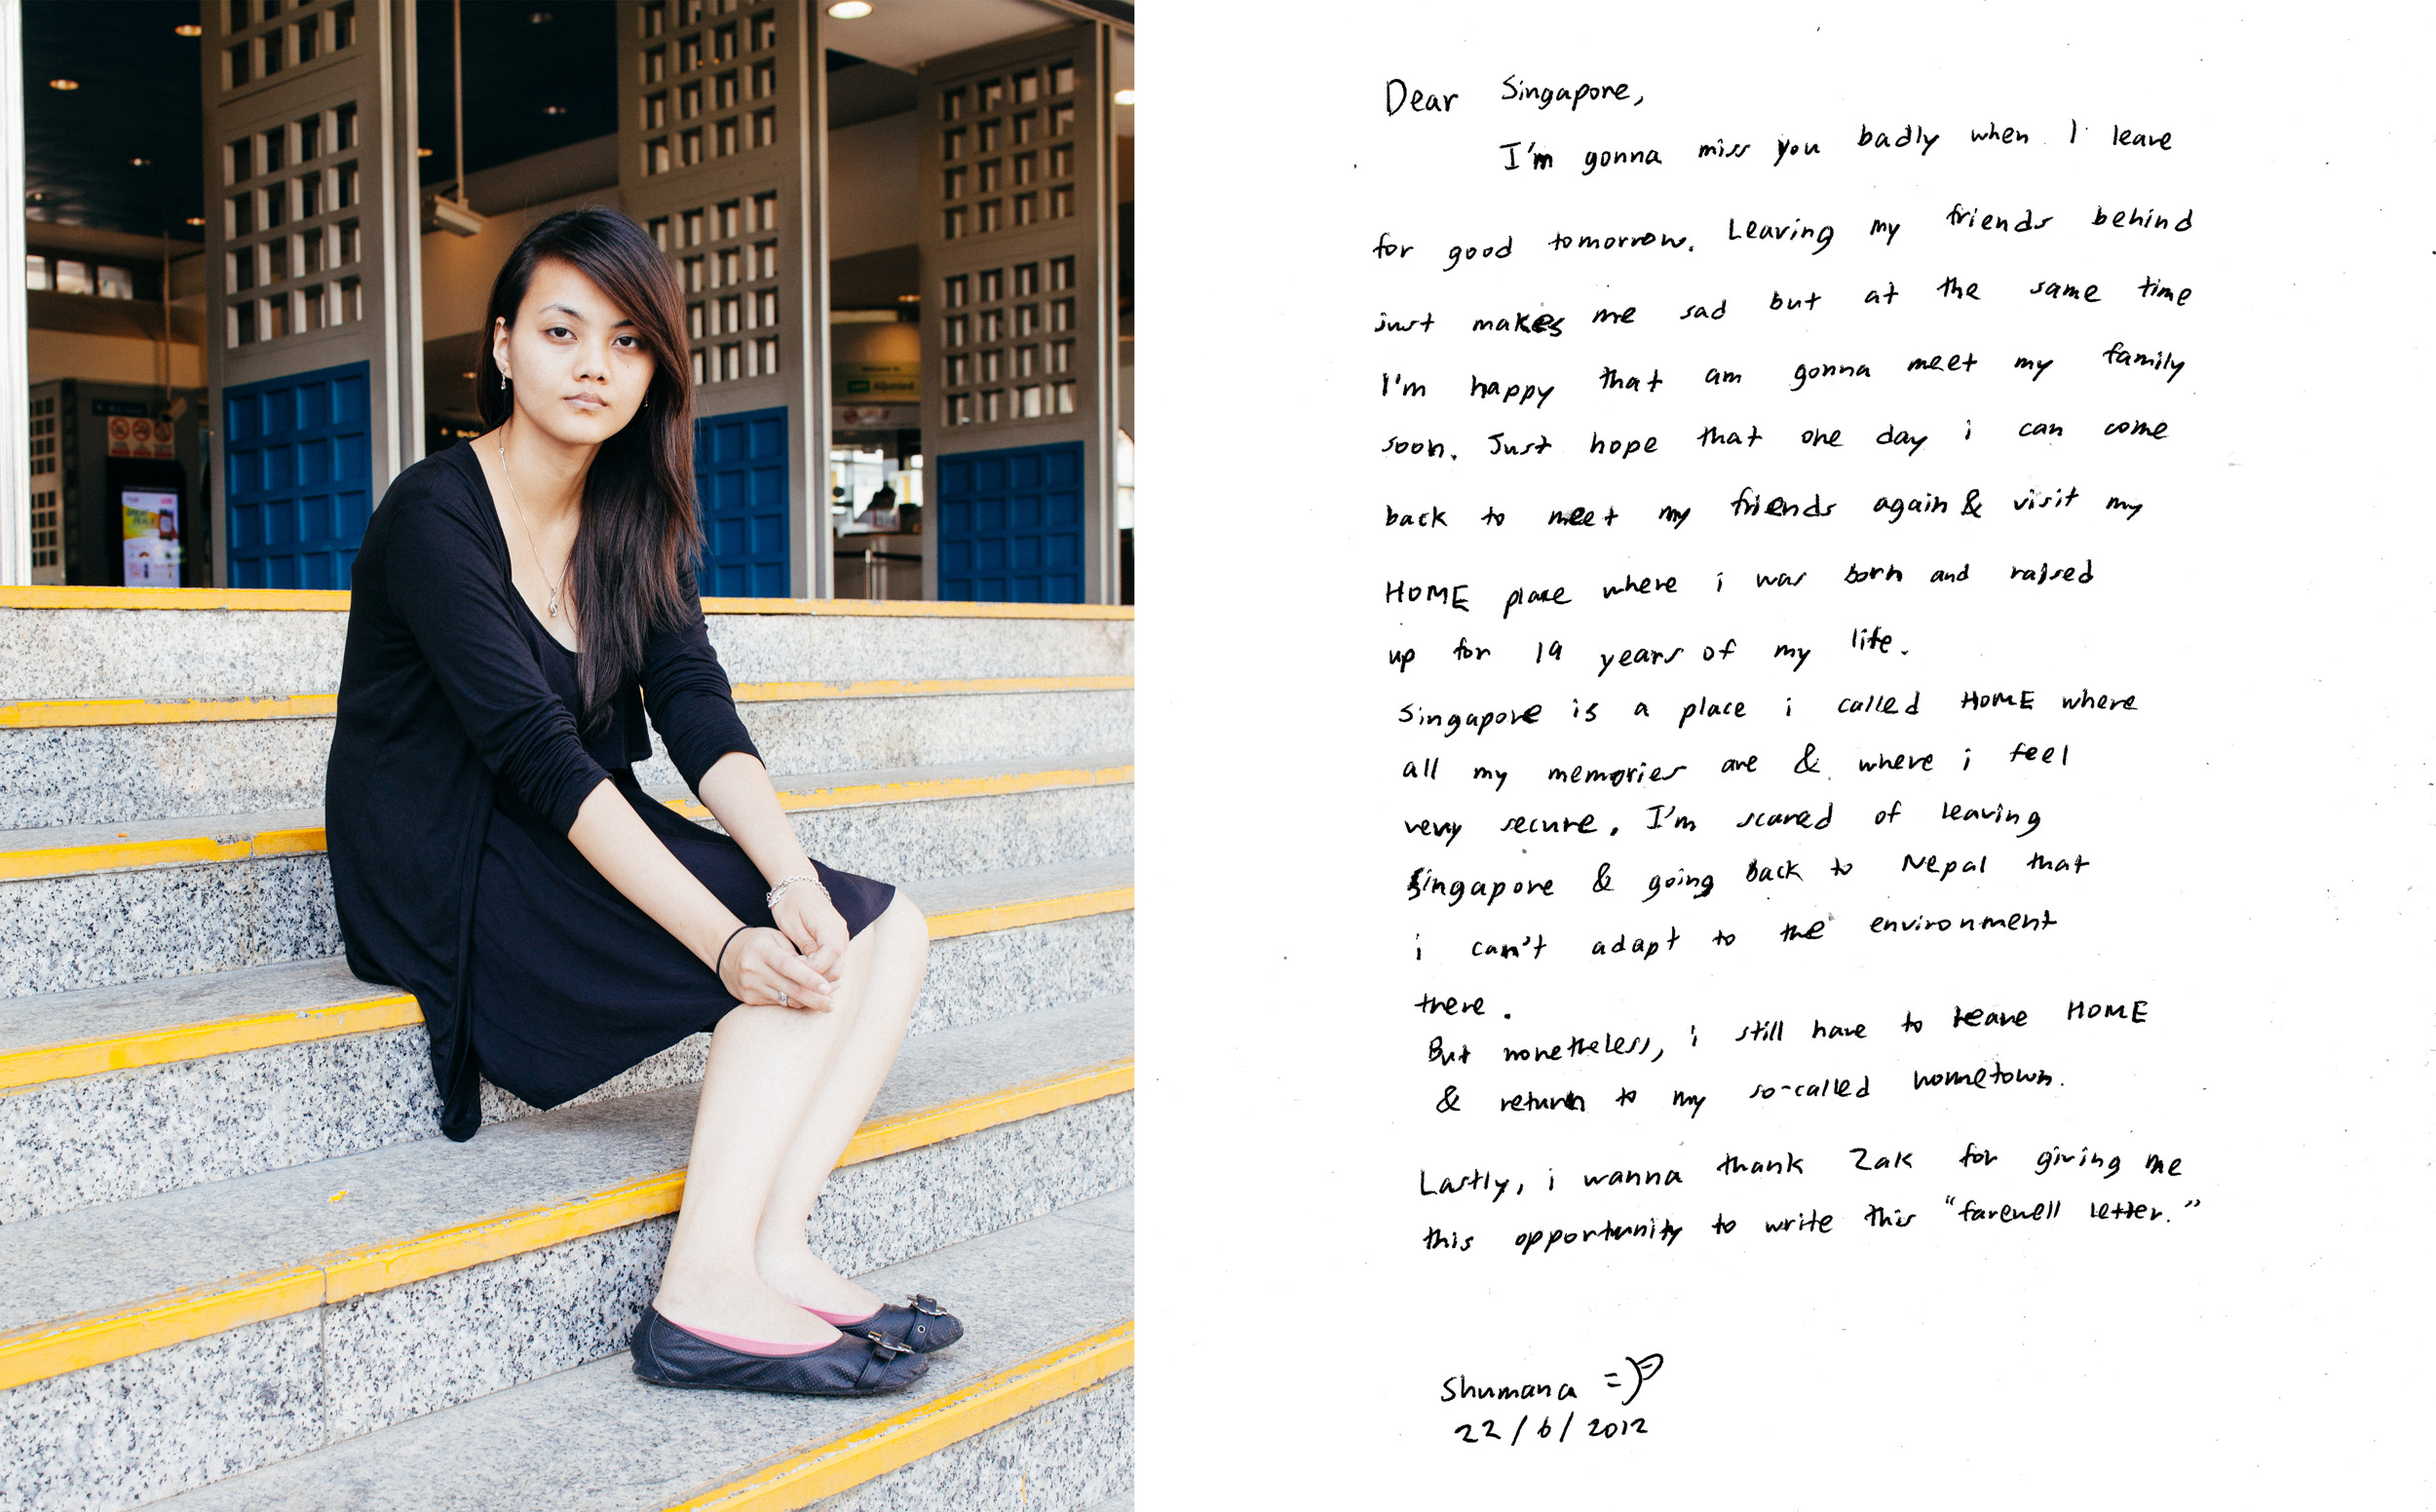 Aljunied
Dear Singapore,
I'm gonna miss you badly when I leave
for good tomorrow. Leaving my friends behind
just makes me sad but at the same time
I'm happy that am gonna meet my family
soon. Just hope that one day i can come
back to meet my friends again & visit my
HOME place where i was born and raised
up for 19 years of my life.
Singapore is a place i called HOME where
all my memories are & where i feel
very secure. I'm scared of leaving
Singapore & going back to Nepal that
i can't adapt to the environment
there.
But nonetheless, i still have to leave HOME
& return to my so-called hometown.
Lastly, i wanna thank Zak for giving me
this opportunity to write this "farewell letter."
Shumana =)
22/6/2012